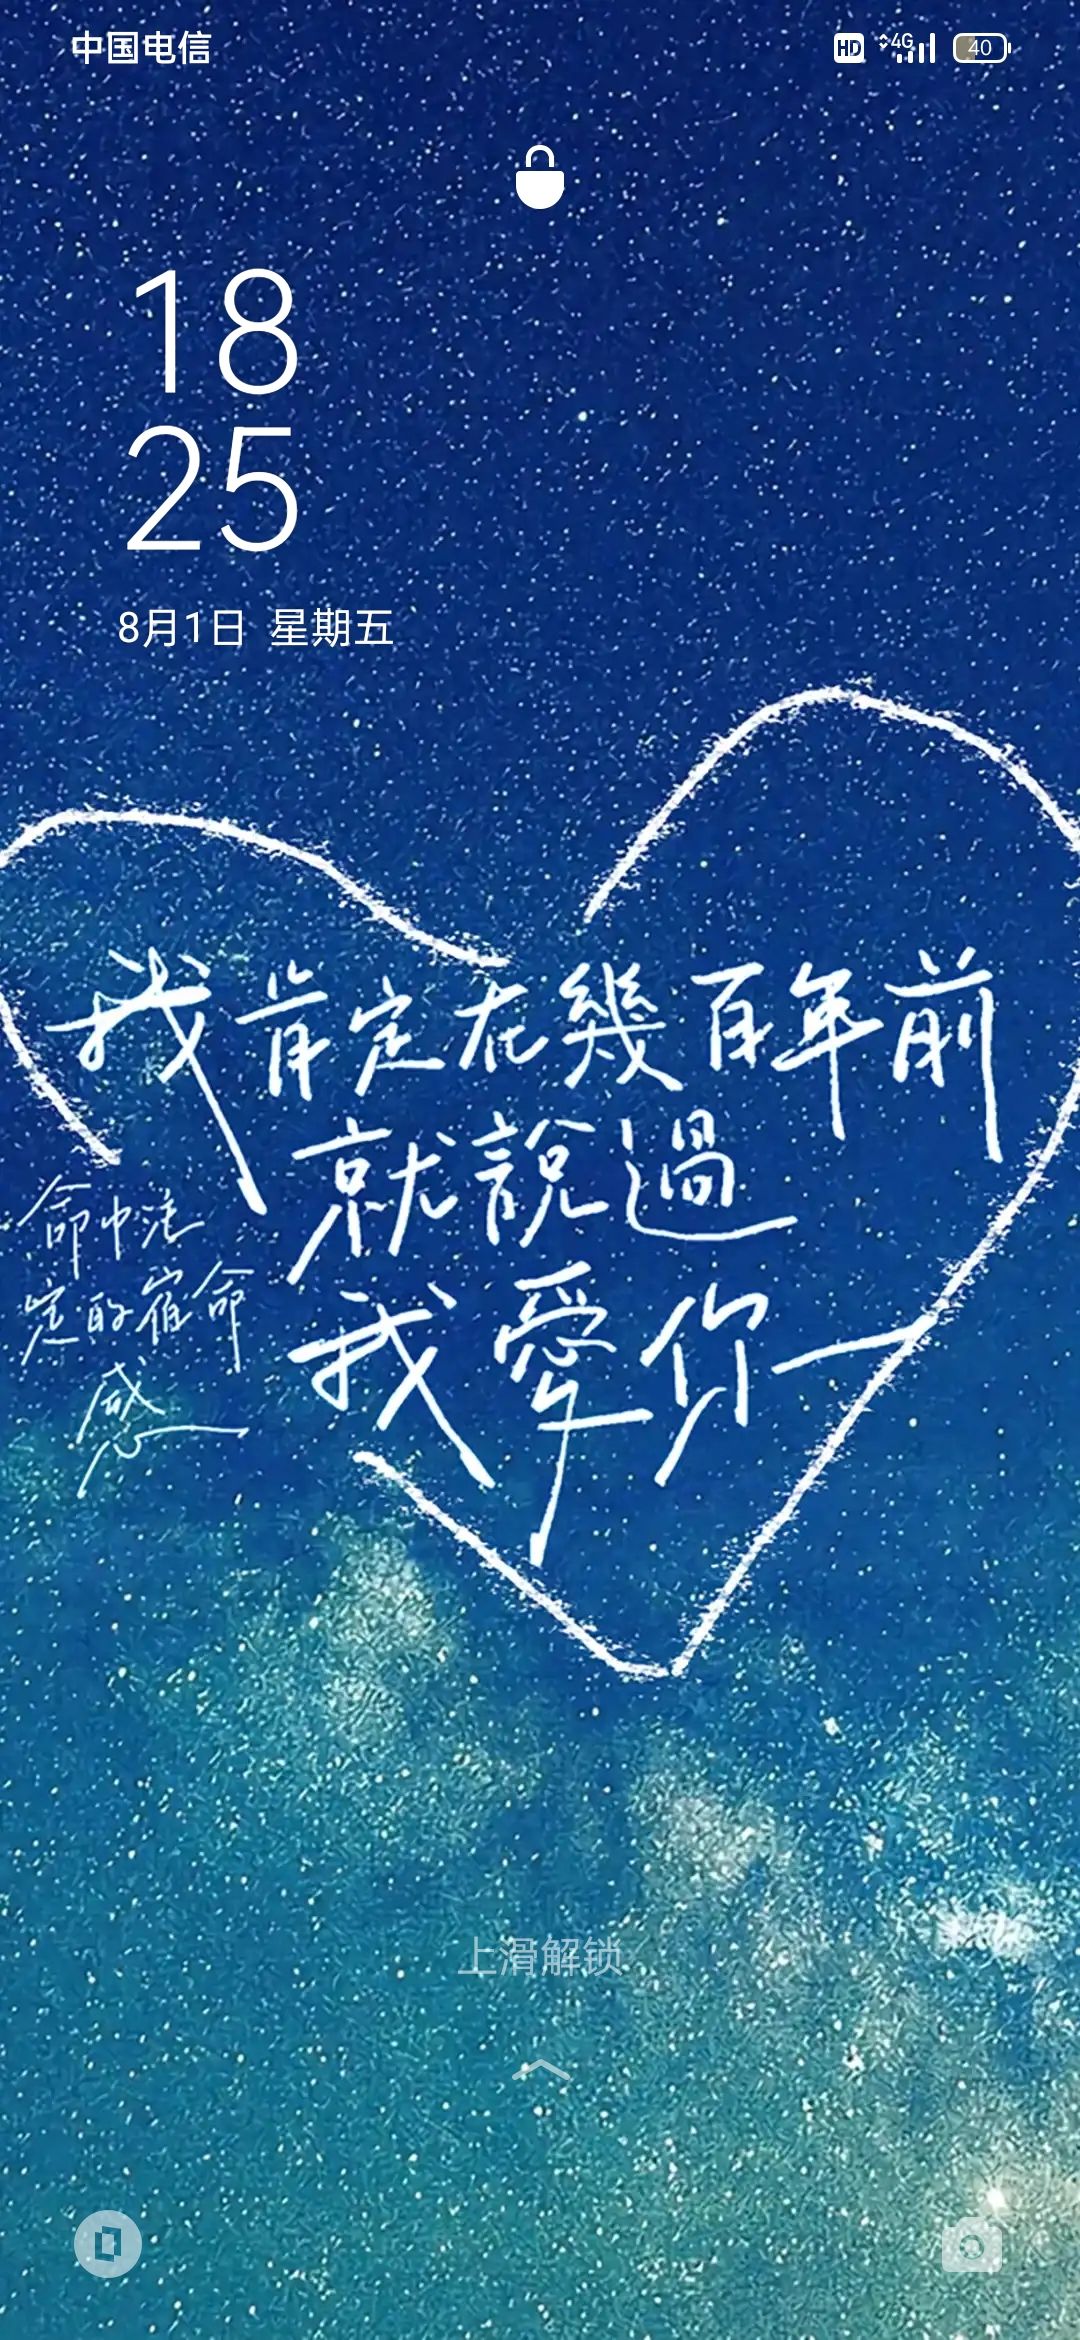 中国电信
HD 4G 40
18
25
8月1日 星期五
我肯定在幾百年前
就說過
我愛你
命中注
定的宿命
感
上滑解锁